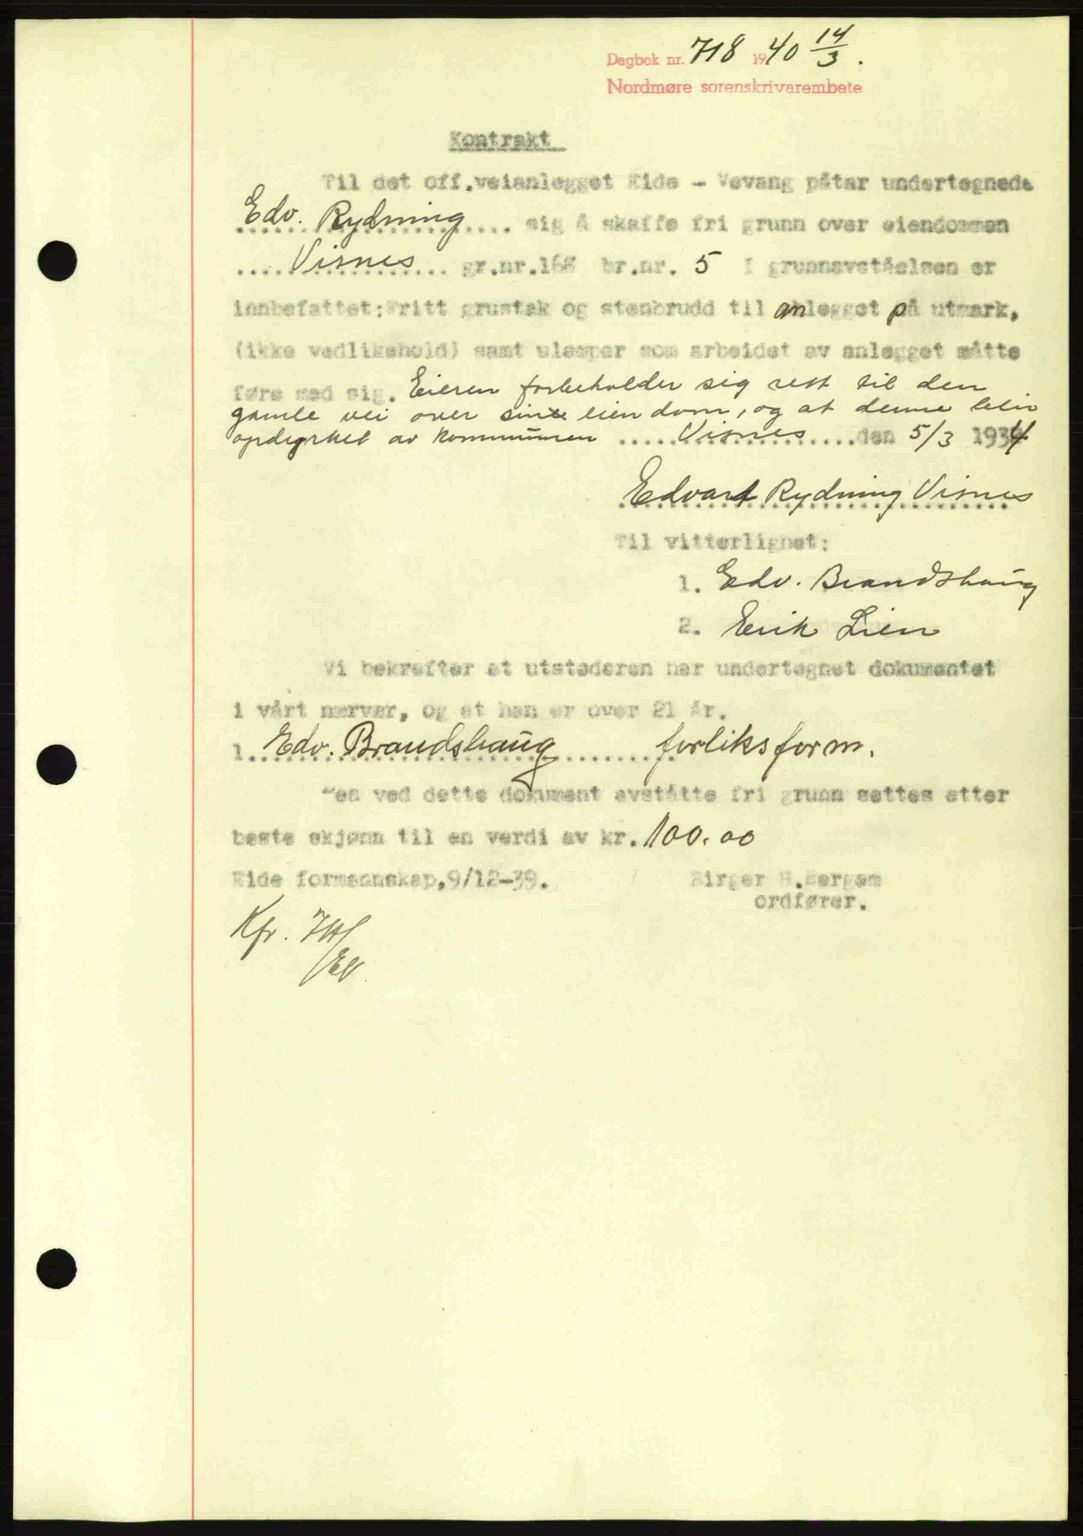 Dagbok nr. 718 1940 14/3.
Nordmøre sorenskriverembete
Kontrakt
Til det off.veianlegget Eide - Vevang påtar undertegnede
Edv. Rydning sig å skaffe fri grunn over eiendommen
Visnes gr.nr.168 br.nr. 5 I grunnavståelsen er
innbefattet: Fritt grustak og stenbrudd til anlegget på utmark,
(ikke vedlikehold) samt ulemper som arbeidet av anlegget måtte
føre med sig. Eieren forbeholder sig rett til den
gamle vei over sine eiendom, og at denne blir
opdyrket av kommunen Visnes den 5/3 1934
Edvard Rydning Visnes
Til vitterlighet:
1. Edv. Brandshaug
2. Erik Lien
Vi bekrefter at utstederen har undertegnet dokumentet
i vårt nærvær, og at han er over 21 år.
1. Edv. Brandshaug forliksform.
Den ved dette dokument avståtte fri grunn settes etter
beste skjønn til en verdi av kr. 100.00
Eide formannskap, 9/12-39. Birger H. Bergem
ordfører.
Kfr.